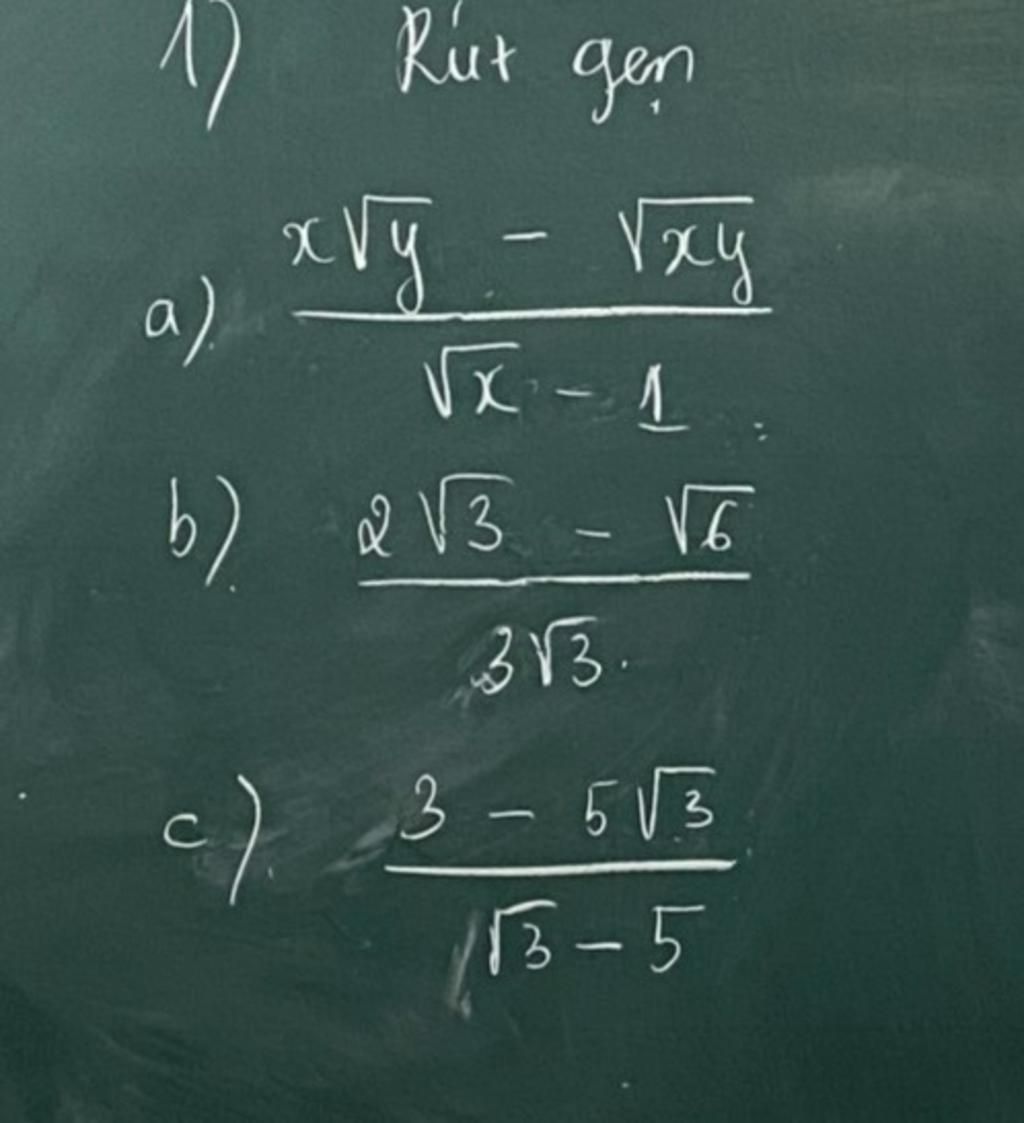 1) Rút gọn
a) (x√y - √xy) / (√x - 1)
b) (2√3 - √6) / (3√3)
c) (3 - 5√3) / (√3 - 5)